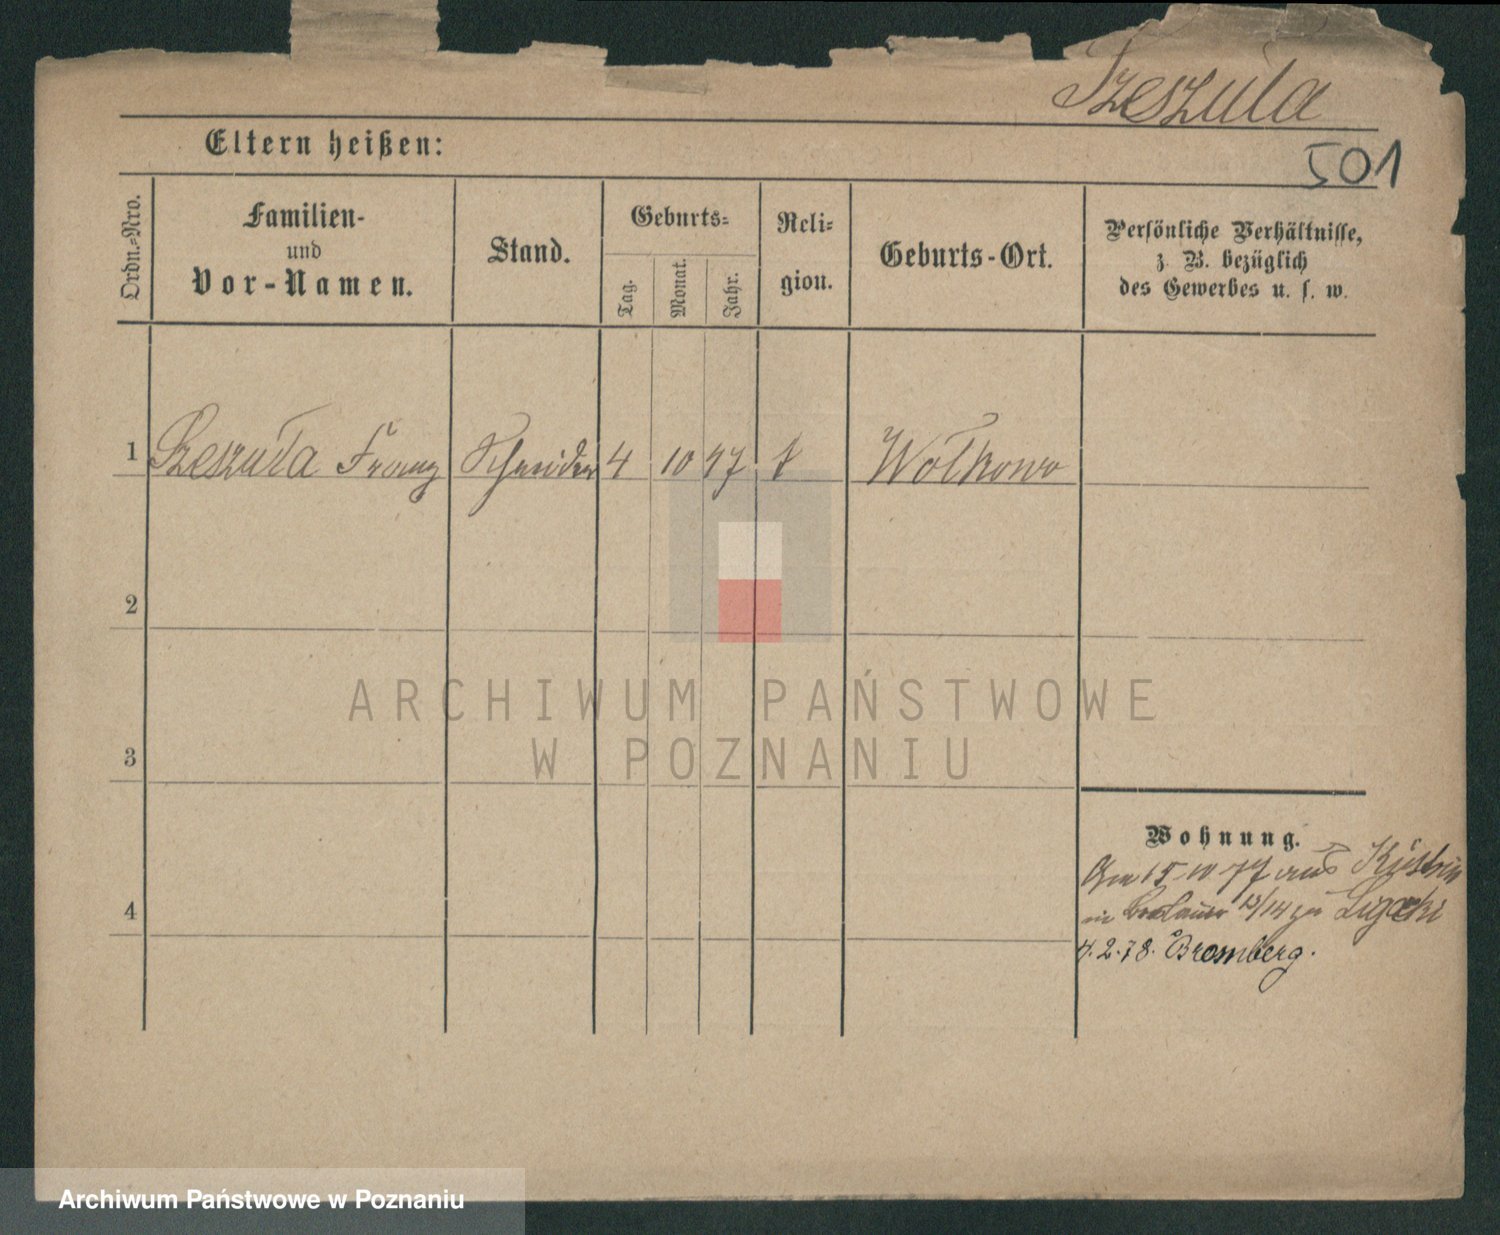 Szeszuła
501
Eltern heißen:
Ordn.-Nro.
Familien-
und
Vor-Namen.
Stand.
Geburts-
Tag.
Monat.
Jahr.
Reli-
gion.
Geburts-Ort.
Persönliche Verhältnisse,
z. B. bezüglich
des Gewerbes u. s. w.
1 Szeszuła Franz Schneider 4 10 47 Wolkowo
2
3
4
Wohnung.
Am 15-10-77 aus Küstrin
in Breslauer 13/14 zu
4.2.78. Bromberg.
ARCHIWUM PAŃSTWOWE
W POZNANIU
Archiwum Państwowe w Poznaniu